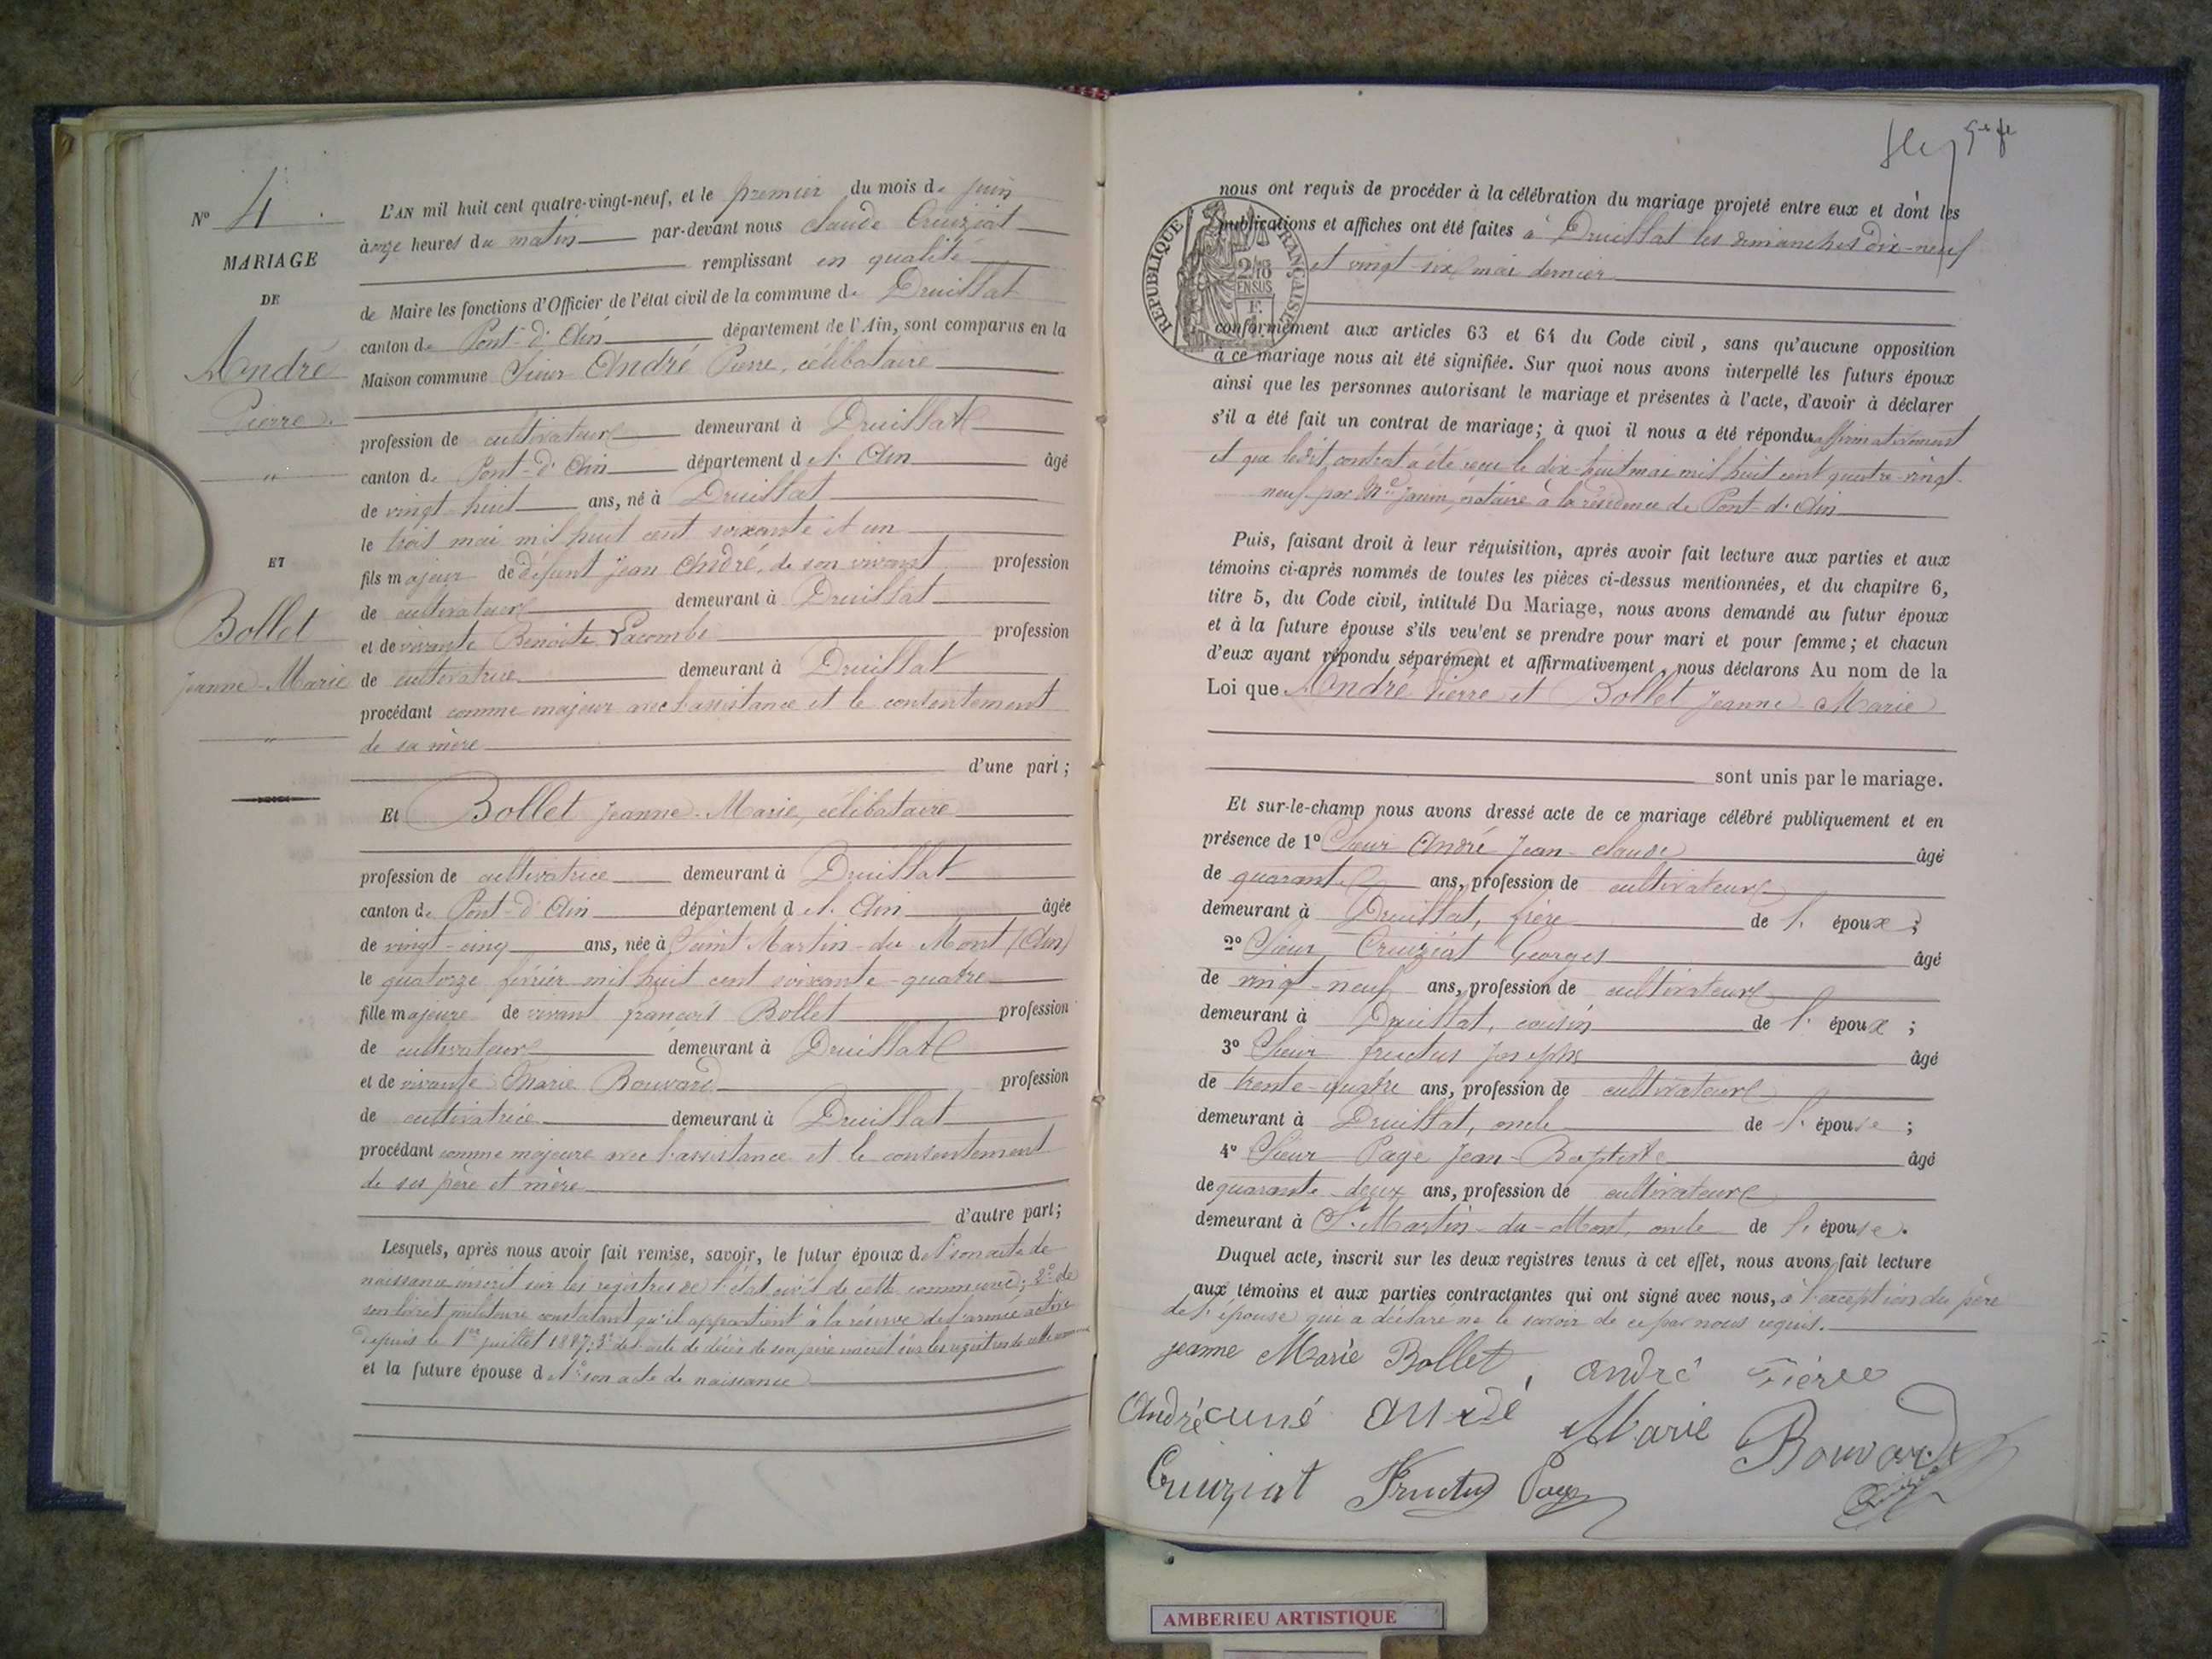 N° 4
MARIAGE
DE
André
Pierre
"
ET
Bollet
Jeanne-Marie
"
L'AN mil huit cent quatre-vingt-neuf, et le premier du mois de juin
à onze heures du matin par-devant nous Claude Cruiziat
remplissant en qualité
de Maire les fonctions d'Officier de l'état civil de la commune de Druillat
canton de Pont-d'Ain département de l'Ain, sont comparus en la
Maison commune Sieur André Pierre, célibataire
profession de cultivateur demeurant à Druillat
canton de Pont-d'Ain département de l'Ain âgé
de vingt-huit ans, né à Druillat
le trois mai mil huit cent soixante et un
fils majeur de défunt Jean André, de son vivant profession
de cultivateur demeurant à Druillat
et de vivante Benoite Lacombe profession
de cultivatrice demeurant à Druillat
procédant comme majeur avec l'assistance et le consentement
de sa mère
d'une part;
Et Bollet Jeanne-Marie, célibataire
profession de cultivatrice demeurant à Druillat
canton de Pont-d'Ain département de l'Ain âgée
de vingt-cinq ans, née à Saint Martin-du-Mont (Ain)
le quatorze février mil huit cent soixante-quatre
fille majeure de vivant François Bollet profession
de cultivateur demeurant à Druillat
et de vivante Marie Bouvard profession
de cultivatrice demeurant à Druillat
procédant comme majeure avec l'assistance et le consentement
de ses père et mère
d'autre part;
Lesquels, après nous avoir fait remise, savoir, le futur époux de 1° son acte de
naissance inscrit sur les registres de l'état civil de cette commune; 2° de
son livret militaire constatant qu'il appartient à la réserve de l'armée active
depuis le 1er juillet 1887; 3° de l'acte de décès de son père inscrit sur les registres de cette commune
et la future épouse de 1° son acte de naissance
nous ont requis de procéder à la célébration du mariage projeté entre eux et dont les
publications et affiches ont été faites à Druillat les dimanches dix-neuf
et vingt-six mai dernier
RÉPUBLIQUE FRANÇAISE
2/10
EN SUS
conformément aux articles 63 et 64 du Code civil, sans qu'aucune opposition
à ce mariage nous ait été signifiée. Sur quoi nous avons interpellé les futurs époux
ainsi que les personnes autorisant le mariage et présentes à l'acte, d'avoir à déclarer
s'il a été fait un contrat de mariage; à quoi il nous a été répondu affirmativement
et que ledit contrat a été reçu le dix-huit mai mil huit cent quatre-vingt-
neuf par Me Janin, notaire à la résidence de Pont-d'Ain
Puis, faisant droit à leur réquisition, après avoir fait lecture aux parties et aux
témoins ci-après nommés de toutes les pièces ci-dessus mentionnées, et du chapitre 6,
titre 5, du Code civil, intitulé Du Mariage, nous avons demandé au futur époux
et à la future épouse s'ils veulent se prendre pour mari et pour femme; et chacun
d'eux ayant répondu séparément et affirmativement, nous déclarons Au nom de la
Loi que André Pierre et Bollet Jeanne Marie
sont unis par le mariage.
Et sur-le-champ nous avons dressé acte de ce mariage célébré publiquement et en
présence de 1° Sieur André Jean-Claude âgé
de quarante ans, profession de cultivateur
demeurant à Druillat, frère de l'époux;
2° Sieur Cruiziat Georges âgé
de vingt-neuf ans, profession de cultivateur
demeurant à Druillat, cousin de l'époux;
3° Sieur Fructus Joseph âgé
de trente-quatre ans, profession de cultivateur
demeurant à Druillat, oncle de l'épouse;
4° Sieur Page Jean-Baptiste âgé
de quarante-deux ans, profession de cultivateur
demeurant à St Martin-du-Mont, oncle de l'épouse.
Duquel acte, inscrit sur les deux registres tenus à cet effet, nous avons fait lecture
aux témoins et aux parties contractantes qui ont signé avec nous, à l'exception du père
de l'épouse qui a déclaré ne le savoir de ce par nous requis.
Jeanne Marie Bollet, André Pierre
André André Marie Bouvard
Cruiziat Fructus Page
AMBERIEU ARTISTIQUE